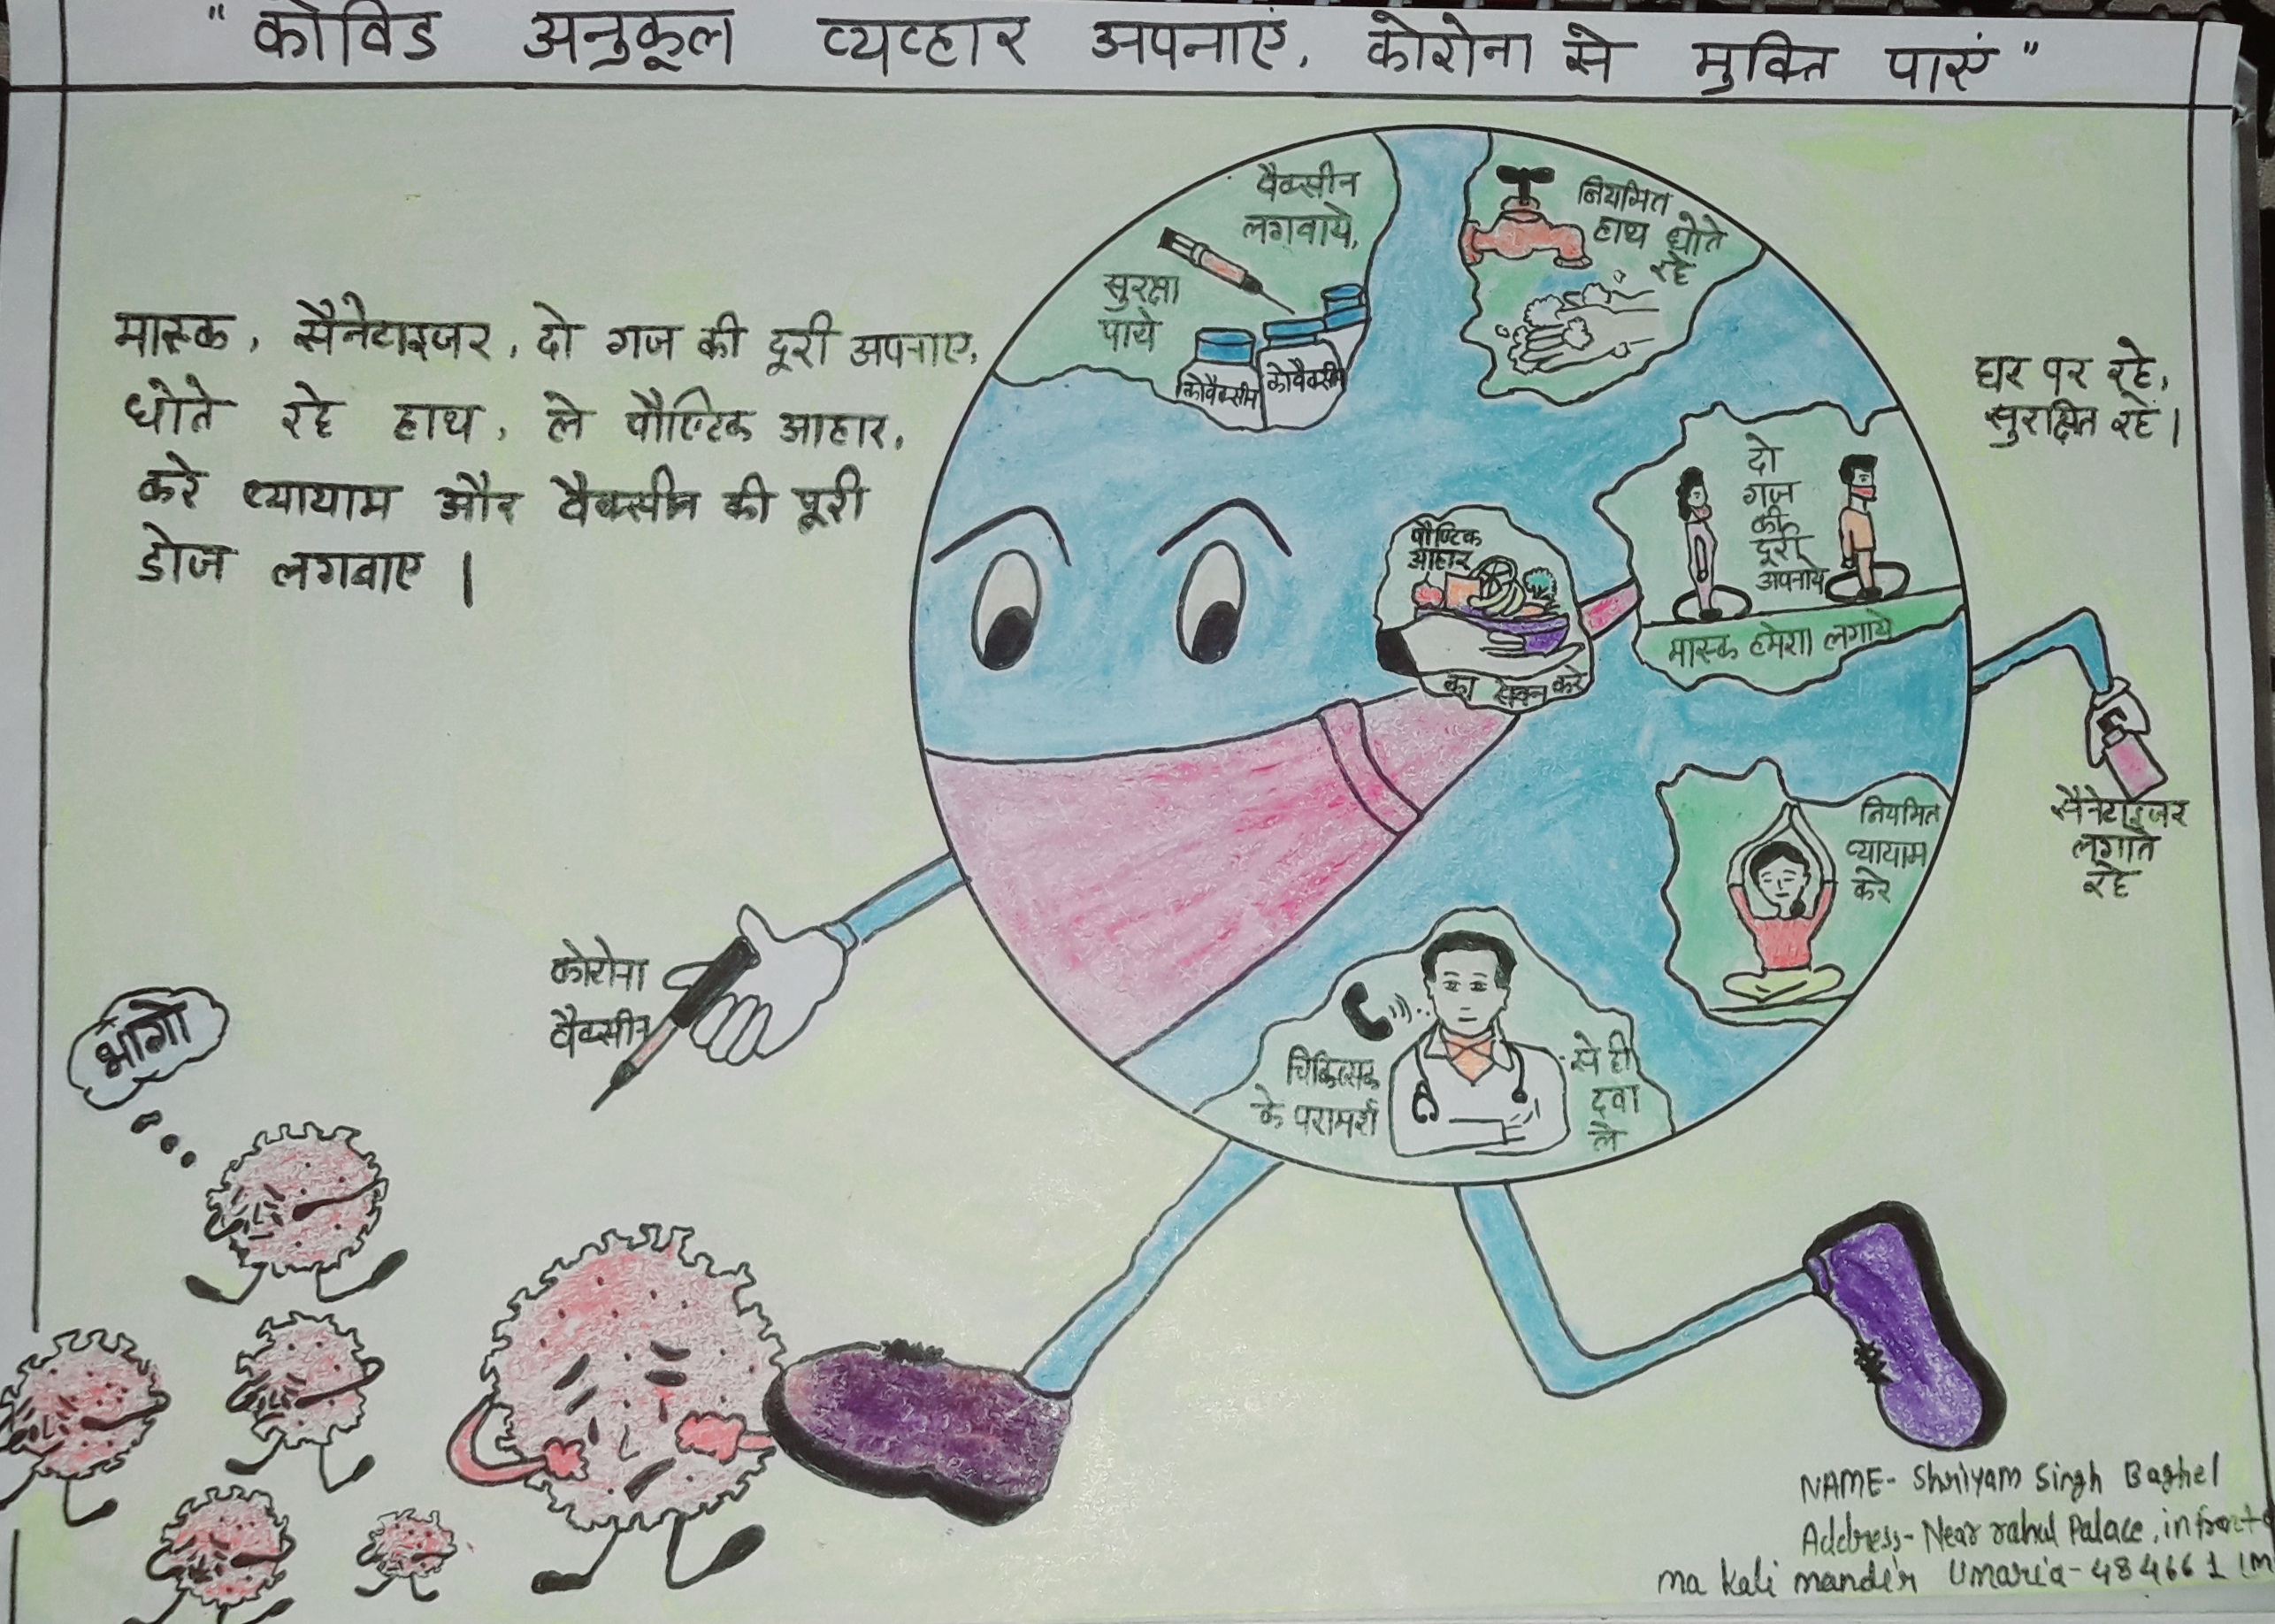 "कोविड अनुकूल व्यव्हार अपनाएं, कोरोना से मुक्ति पाएं"
मास्क, सैनेटाइजर, दो गज की दूरी अपनाए,
धोते रहे हाथ, ले पौष्टिक आहार,
करे व्यायाम और वैक्सीन की पूरी
डोज लगवाए |
वैक्सीन
लगवाये,
सुरक्षा
पाये
कोवैक्सीन
कोवैक्सीन
नियमित
हाथ धोते
रहे
दो
गज
की
दूरी
अपनाये
मास्क हमेशा लगाये
पौष्टिक
आहार
का सेवन करे
घर पर रहे,
सुरक्षित रहें |
सैनेटाइजर
लगाते
रहे
नियमित
व्यायाम
करे
चिकित्सक
के परामर्श
से ही
दवा
ले
कोरोना
वैक्सीन
भागो
NAME- Shriyam Singh Baghel
Address- Near rahul Palace, in front
ma Kali mandir Umaria- 484661 (M